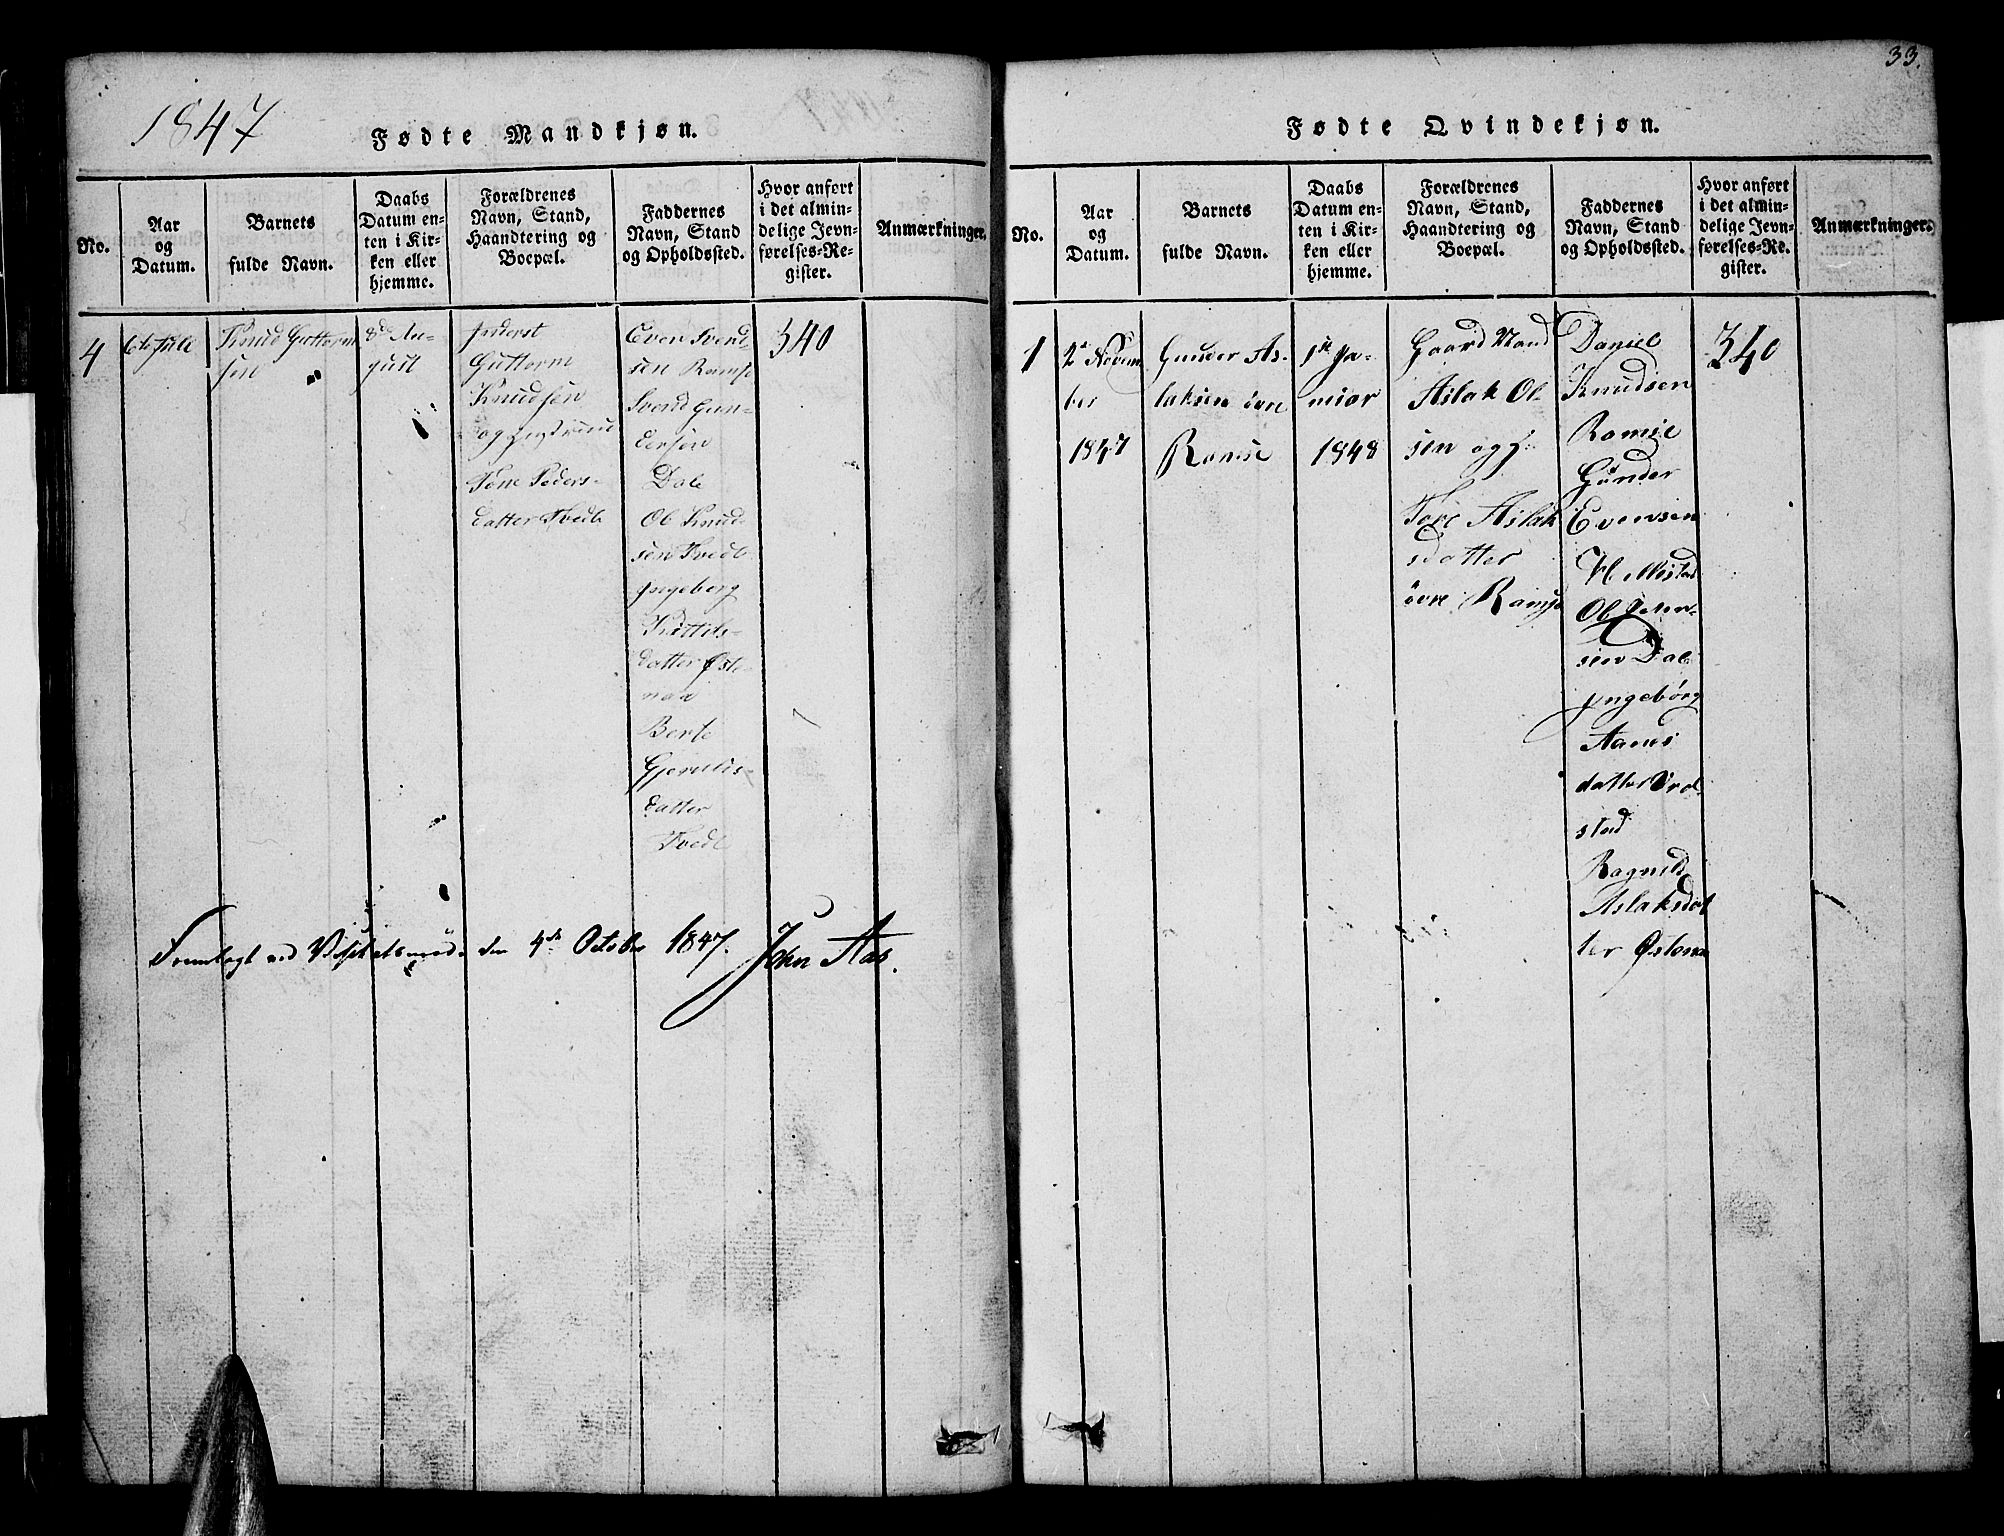 33.
1847
Fødte Mandkjøn.
No.
Aar
og
Datum.
Barnets
fulde Navn.
Daabs
Datum en-
ten i Kir-
ken eller
hjemme.
Forældrenes
Navn, Stand,
Haandtering og
Boepæl.
Faddernes
Navn, Stand
og Opholdssted.
Hvor anført
i det almin-
delige Jevn-
førelses-Re-
gister.
Anmærkninger.
4
6te Juli
Knud Guttorm
sen
8de Au-
gust
Inderst
Guttorm
Knudsen
og
Tone Peders-
datter Tvedt
Even Svend
sen Ramse
Svend Gun-
dersen
Dale
Ole Knud-
sen Tvedt
Ingeborg
Kittils-
datter Øste-
naa
Berte
datter
Tvedt
340
Fremlagt ved Visitatsmøde den 4de October 1847. John Aas.
Fødte Qvindekjøn.
No.
Aar
og
Datum.
Barnets
fulde Navn.
Daabs
Datum en-
ten i Kir-
ken eller
hjemme.
Forældrenes
Navn, Stand,
Haandtering og
Boepæl.
Faddernes
Navn, Stand
og Opholdssted.
Hvor anført
i det almin-
delige Jevn-
førelses-Re-
gister.
Anmærkninger.
1
2 Novem
ber
1847
Gunder As-
laksen övre
Ramse
1ste Ja-
nuar
1848
Gaard Mand
Aslak Ol
sen og
Tore Aslak
sdatter
övre Ramse
Daniel
Knudsen
Ramse
Gunder
Evensen
Ole
sen Dale
Ingebørg
datter
stad
Ragnild
Aslaksdat
ter Østenaa
340